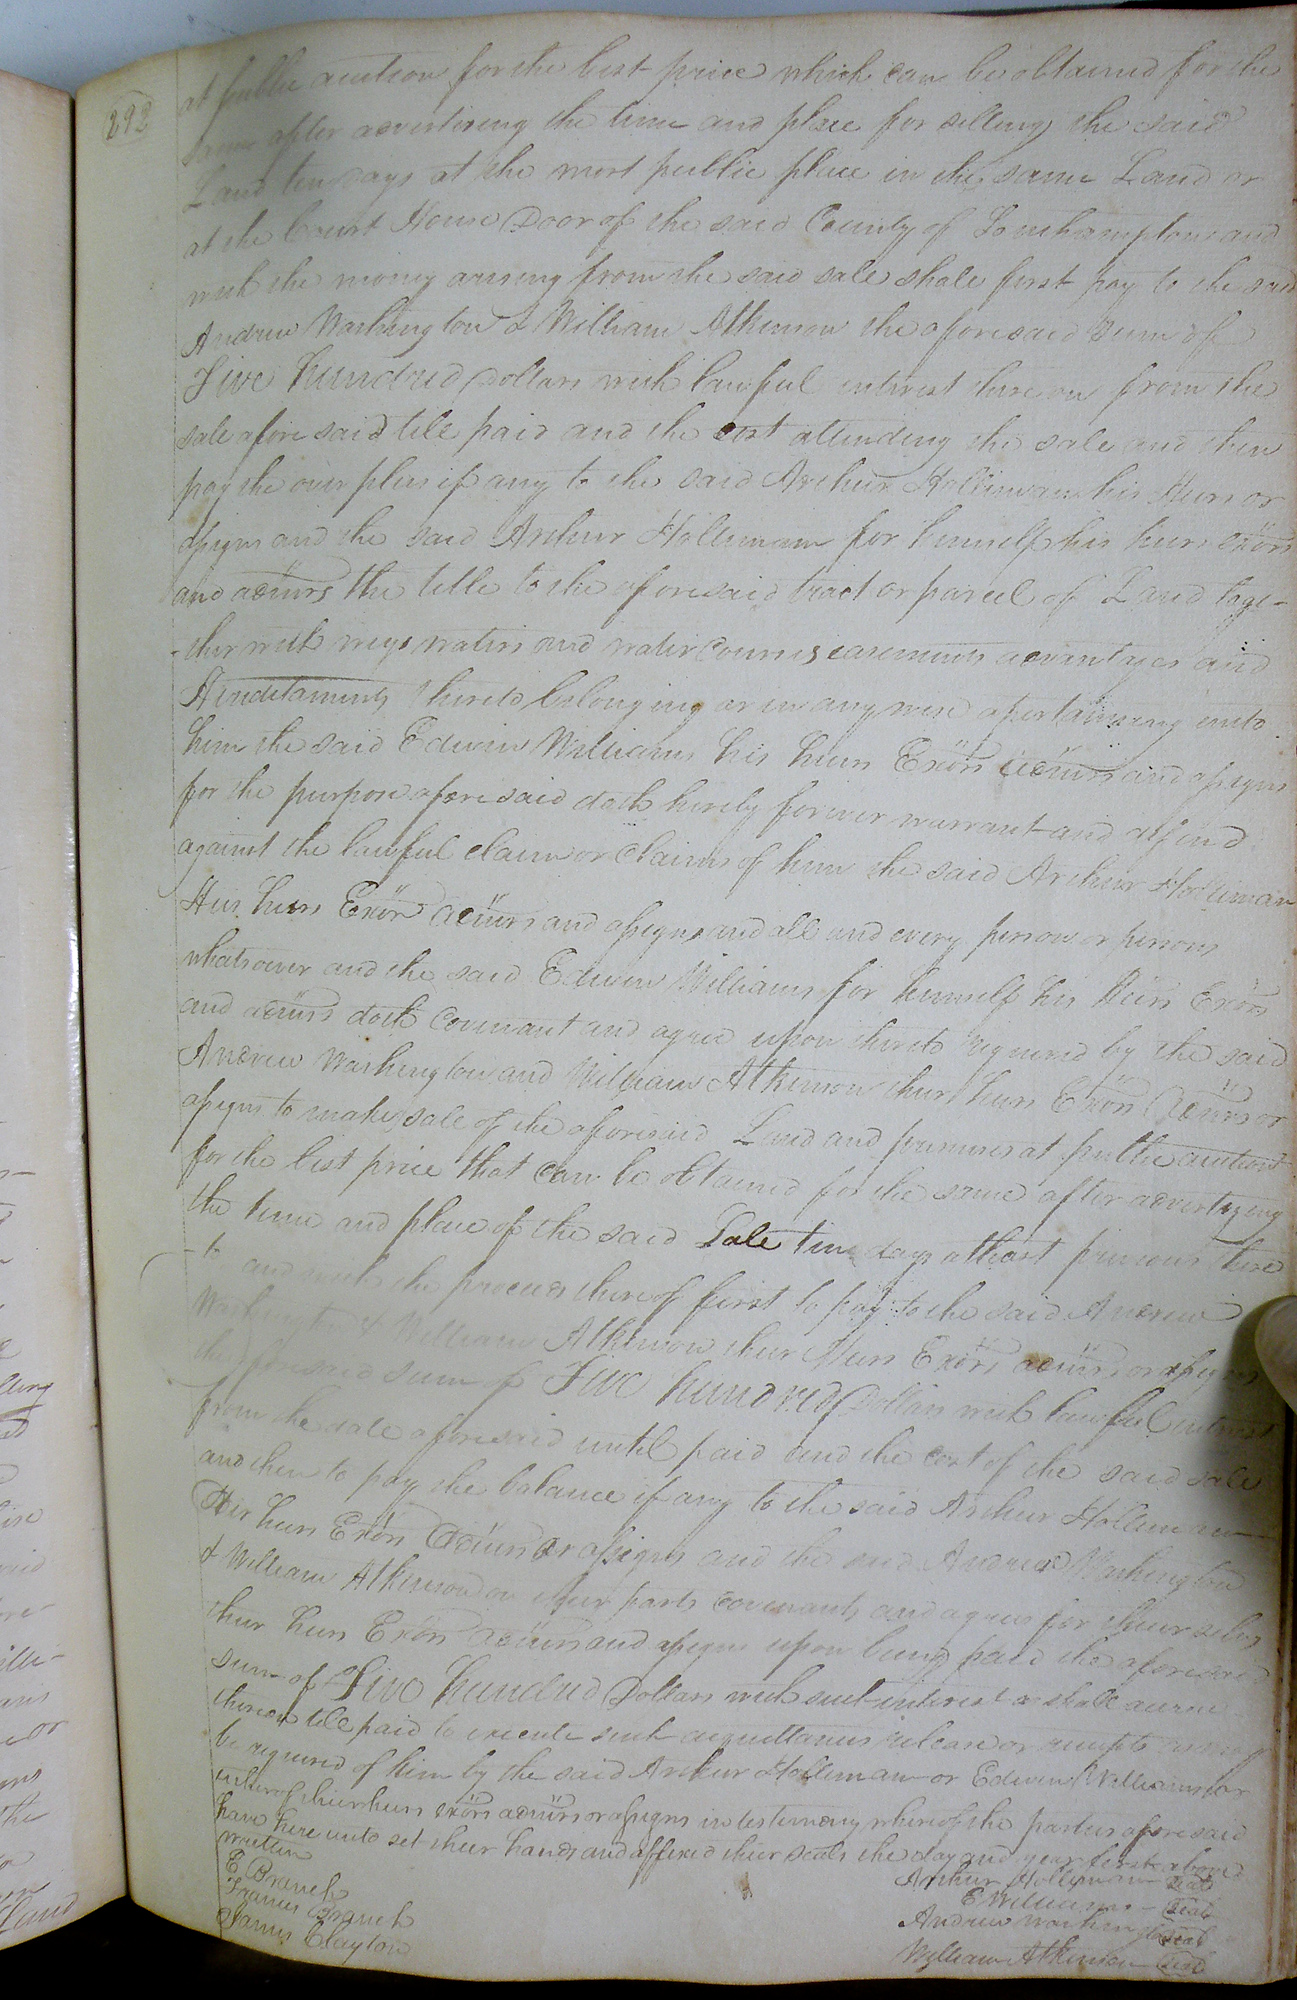 292
at public auction for the best price which can be obtained for the
same after advertising the time and place for selling the said
Land ten days at the most public place in the same Land or
at the Court House Door of the said County of Southampton and
with the money arising from the said sale shall first pay to the said
Andrew Washington & William Atkinson the aforesaid sum of
Five hundred Dollars with lawful interest thereon from the
sale aforesaid till paid and the cost attending the sale and then
pay the over plus if any to the said Arthur Holliman his Heirs or
assigns and the said Arthur Holliman for himself his heirs exörs
and admrs the title to the aforesaid tract or parcel of Land toge-
-ther with ways waters and water courses easements advantages and
Hereditaments thereto belonging or in any wise apertaining unto
him the said Edwin Williams his heirs Exörs admrs and assigns
for the purpose aforesaid doth hereby forever warrant and defend
against the lawful claim or Claims of him the said Arthur Holliman
His heirs Exörs admrs and assigns and all and every person or persons
whatsoever and the said Edwin Williams for himself his Heirs Exörs
and admrs doth Covenant and agree upon thereto required by the said
Andrew Washington and William Atkinson their heirs Exörs Admrs or
assigns to make sale of the aforesaid Land and premises at public auction
for the best price that can be obtained for the same after advertizing
the time and place of the said Sale ten days at least previous there
-to and with the proceeds thereof first to pay to the said Andrew
Washington & William Atkinson their Heirs Exörs admrs or assigns
the aforesaid sum of Five hundred Dollars with lawful interest
from the sale aforesaid until paid and the cost of the said sale
and then to pay the balance if any to the said Arthur Holliman
His heirs Exörs Admrs or assigns and the said Andrew Washington
& William Atkinson on their parts covenants and agrees for their selves
their heirs Exörs admrs and assigns upon being paid the aforesaid
sum of Five hundred Dollars with such interest as shall accrue
thereon till paid to execute such acquittances release or receipts as may
be required of him by the said Arthur Holliman or Edwin Williams or
either of their heirs exörs admrs or assigns in testimony whereof the parties aforesaid
have here unto set their hands and affixed their seals the day and year first above
written
Arthur Holliman Seal
E Branch
E Williams Seal
Francis Branch
Andrew Washington Seal
James Clayton
William Atkinson Seal